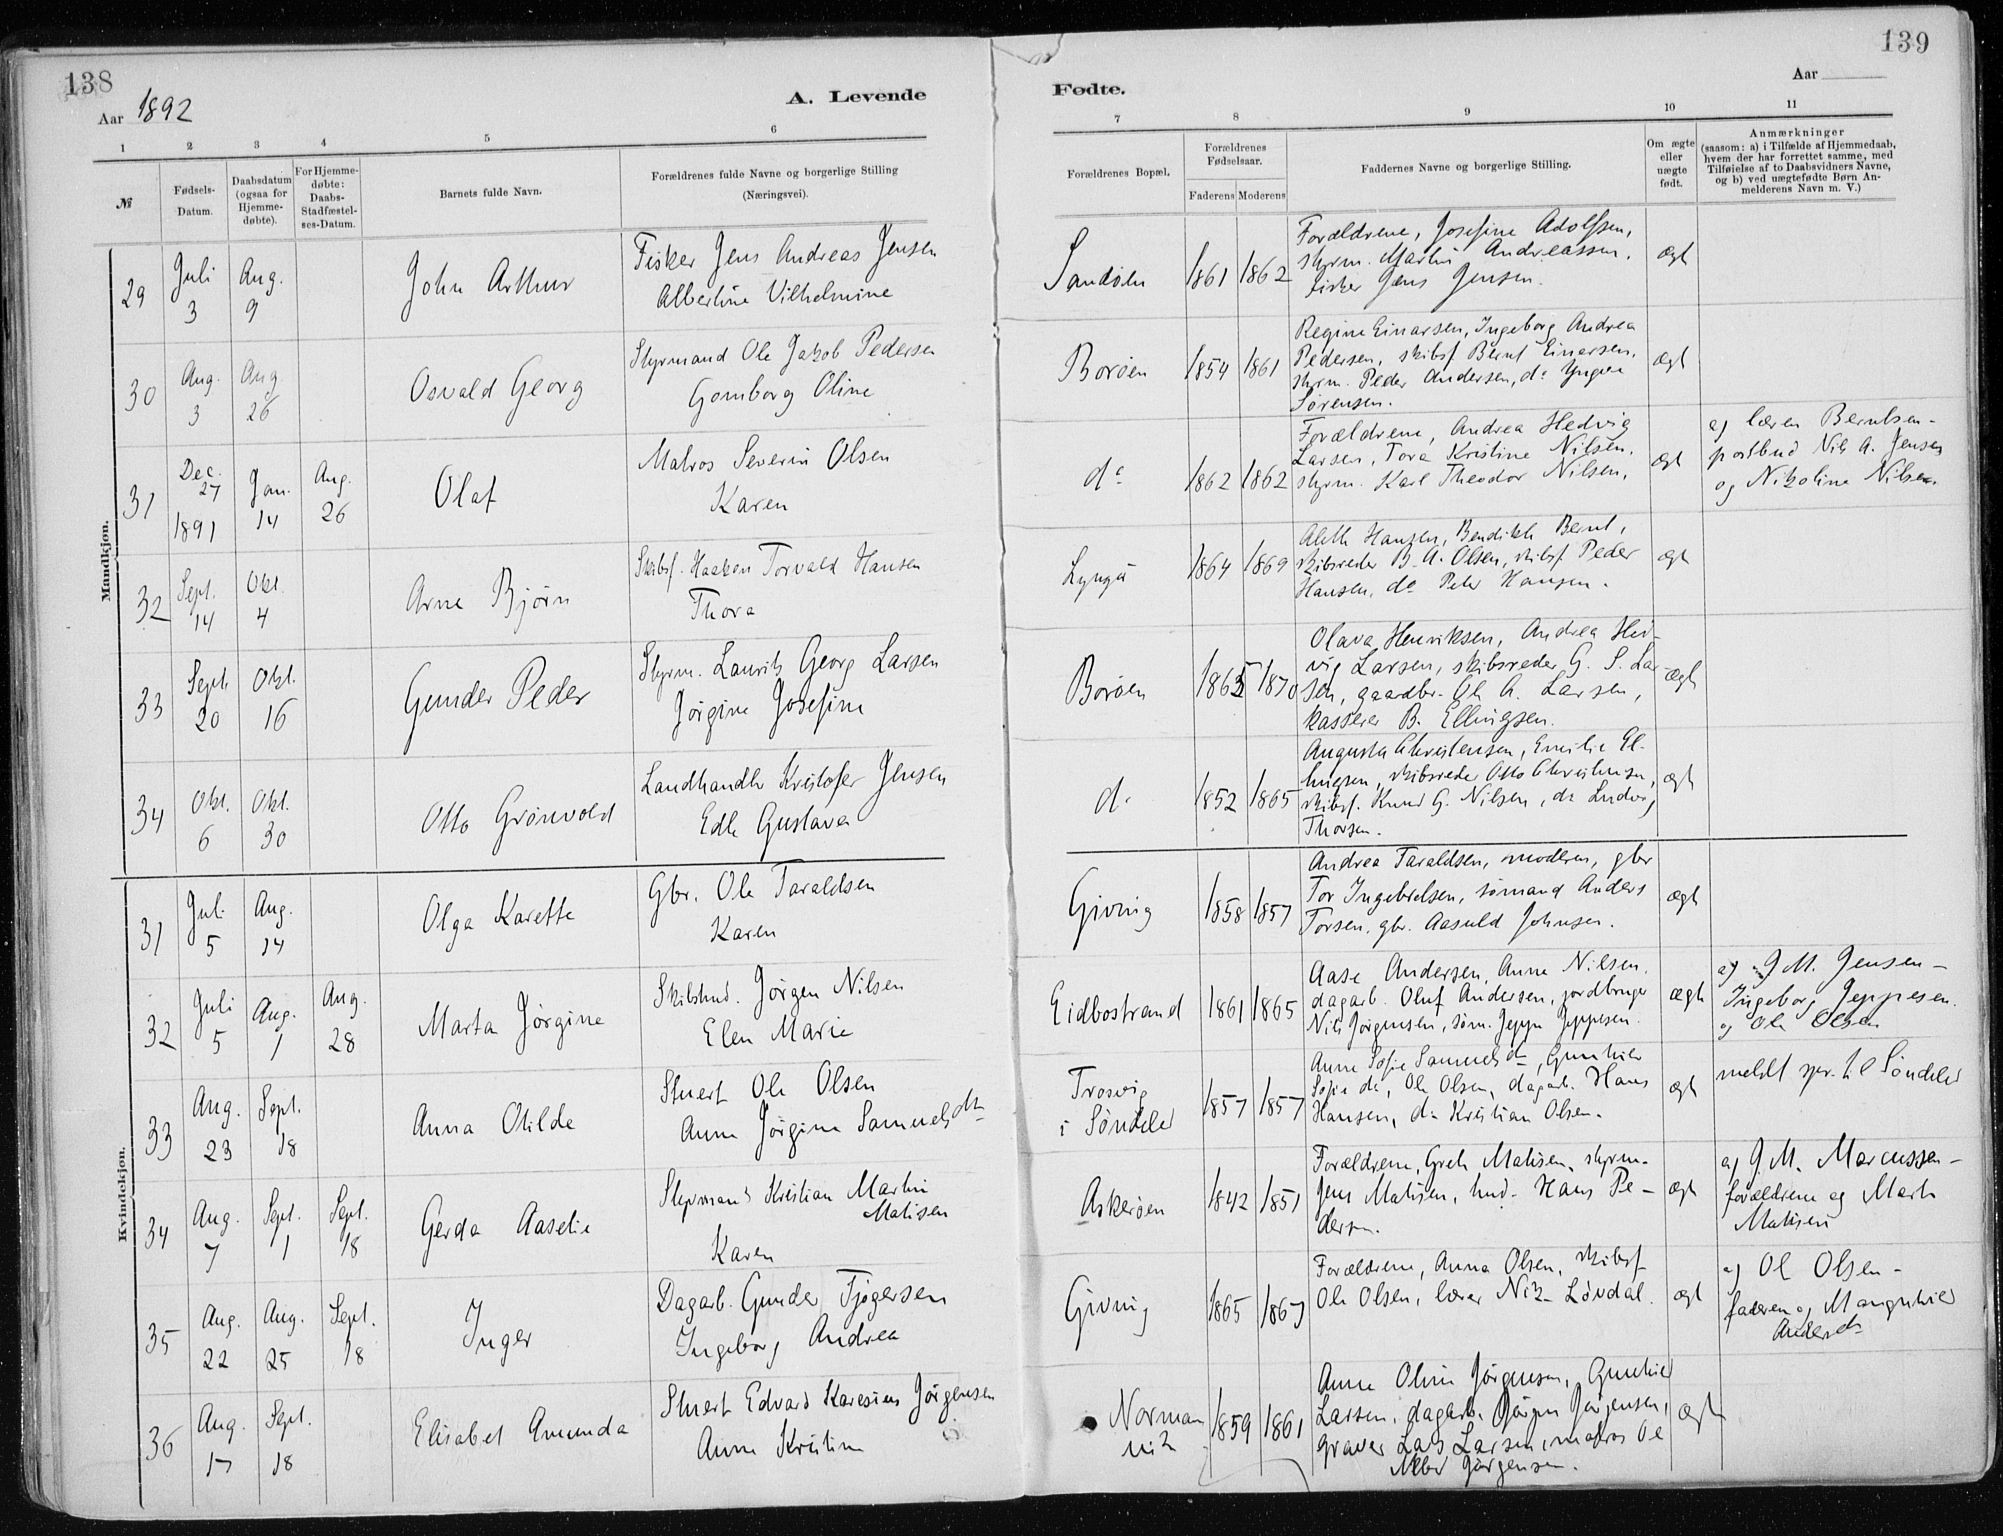 138
Aar 1892
A. Levende
1 2 3 4 5 6
№
Fødsels-
Datum.
Daabsdatum
(ogsaa for
Hjemme-
døbte).
For Hjemme-
døbte:
Daabs-
Stadfæstel-
ses-Datum.
Barnets fulde Navn.
Forældrenes fulde Navne og borgerlige Stilling
(Næringsvei).
Mandkjøn.
29 Juli 3 Aug. 9 John Arthur
Fisker Jens Andreas Jensen
Albertine Vilhelmine
30 Aug. 3 Aug. 26 Osvald Georg
Styrmand Ole Jakob Pedersen
Gomborg Oline
31 Dec. 27 1891 Jan. 14 Aug. 26 Olaf
Matros Severin Olsen
Karen
32 Sept. 14 Okt. 4 Arne Bjørn
Skibsf. Haaken Torvald Hansen
Thora
33 Sept. 20 Okt. 16 Gunder Peder
Styrm. Laurits Georg Larsen
Jørgine Josefine
34 Okt. 6 Okt. 30 Otto Grønvold
Landhandler Kristofer Jensen
Edle Gustava
Kvindekjøn.
31 Juli 5 Aug. 14 Olga Karette
Gbr. Ole Taraldsen
Karen
32 Juli 5 Aug. 1 Aug. 28 Marta Jørgine
Skibstmd. Jørgen Nilsen
Elen Marie
33 Aug. 23 Sept. 18 Anna Otilde
Stuert Ole Olsen
Anne Jørgine Samuelsdtr
34 Aug. 7 Sept. 1 Sept. 18 Gerda Aaselie
Styrmand Kristian Martin
Matisen
Karen
35 Aug. 22 Aug. 25 Sept. 18 Inger
Dagarb. Gunder Tjøgersen
Ingeborg Andrea
36 Aug. 17 Sept. 18 Elisabet Amunda
Stuert Edvard Karesius Jørgensen
Anne Kristine
139
Aar
Fødte.
7 8 9 10 11
Forældrenes Bopæl,
Forældrenes
Fødselsaar.
Faderens Moderens
Faddernes Navne og borgerlige Stilling.
Om ægte
eller
uægte
født.
Anmærkninger
(saasom: a) i Tilfælde af Hjemmedaab,
hvem der har forrettet samme, med
Tilføielse af to Daabsvidners Navne,
og b) ved uægtefødte Børn An-
melderens Navn m. V.)
Sandøen 1861 1862
Forældrene, Josefine Adolfsen,
styrm. Martin Andreassen,
fisker Jens Jensen.
ægt
Borøen 1854 1861
Regine Einarsen, Ingeborg Andrea
Pedersen, skibsf Bernt Einarsen,
styrm. Peder Andersen, do Yngvar
Sørensen.
ægt
do 1862 1862
Forældrene, Andrea Hedvig
Larsen, Tora Kristine Nilsen,
styrm. Karl Theodor Nilsen,
ægt
a) lærer Berntsen -
postbud Nils A. Jensen
og Nikoline Nilsen
Lyngør 1864 1869
Aleth Hansen, Bendikte Bernt,
skibsreder B. A. Olsen, skibsf Peder
Hansen, do Peter Hansen.
ægt
Borøen 1863 1870
Olava Henriksen, Andrea Hed-
vig Larsen, skibsreder G. S. Lar-
sen, gaardbr. Ole A. Larsen,
kasserer B. Ellingsen.
ægt
do 1852 1865
Augusta Christensen, Emilie El-
lingsen, skibsreder Otto Christensen,
skibsf. Knud G. Nilsen, do Ludvig
Thorsen.
ægt
Giving 1858 1857
Andrea Taraldsen, moderen, gbr
Tor Ingebretsen, sømand Anders
Torsen, gbr. Aasuld Johnsen.
ægt
Eidbostrand 1861 1865
Aase Andersen, Anne Nilsen,
dagarb. Oluf Andersen, jordbruger
Nils Jørgensen, søm. Jeppe Jeppesen.
ægt
a) J. M. Jensen -
Ingeborg Jeppesen
og Ole Olsen
Trosvig
i Søndeled
1857 1857
Anne Sofie Samuelsdtr, Gunhild
Sofie do, Ole Olsen, dagarb. Hans
Hansen, do Kristian Olsen.
ægt
meldt spr. til Søndeled
Askerøen 1842 1851
Forældrene, Grete Matisen, styrm.
Jens Matisen, tmd. Hans Pe-
dersen.
ægt
a) J. M. Marcussen -
forældrene og Marte
Matisen
Giving 1865 1867
Forældrene, Anna Olsen, skibsf
Ole Olsen, lærer Nik. Løvdal.
ægt
a) Ole Olsen -
faderen og Mangnhild
Andersdtr
Norman
vik
1859 1861
Anne Oline Jørgensen, Gunhild
Larsen, dagarb. Jørgen Jørgensen,
graver Lars Larsen, matros Ole
Jørgensen.
ægt